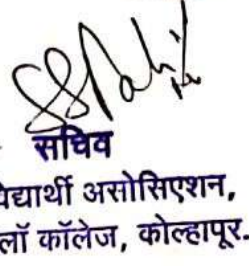 सचिव
विद्यार्थी असोसिएशन,
लॉ कॉलेज, कोल्हापूर.